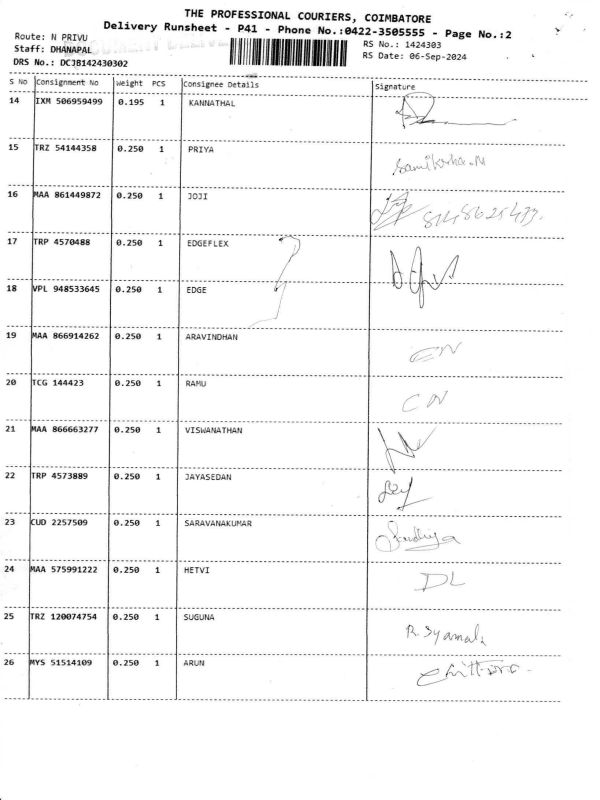 THE PROFESSIONAL COURIERS, COIMBATORE
Delivery Runsheet - P41 - Phone No.:0422-3505555 - Page No.:2
Route: N PRIVU
RS No.: 1424303
Staff: DHANAPAL
RS Date: 06-Sep-2024
DRS No.: DCJB142430302
S No Consignment No Weight PCS Consignee Details Signature
14 IXM 506959499 0.195 1 KANNATHAL
15 TRZ 54144358 0.250 1 PRIYA Samiksha.N
16 MAA 861449872 0.250 1 JOJI
17 TRP 4570488 0.250 1 EDGEFLEX
18 VPL 948533645 0.250 1 EDGE
19 MAA 866914262 0.250 1 ARAVINDHAN CN
20 TCG 144423 0.250 1 RAMU CN
21 MAA 866663277 0.250 1 VISWANATHAN
22 TRP 4573889 0.250 1 JAYASEDAN
23 CUD 2257509 0.250 1 SARAVANAKUMAR Sandhiya
24 MAA 575991222 0.250 1 HETVI DL
25 TRZ 120074754 0.250 1 SUGUNA R. Syamala
26 MYS 51514109 0.250 1 ARUN